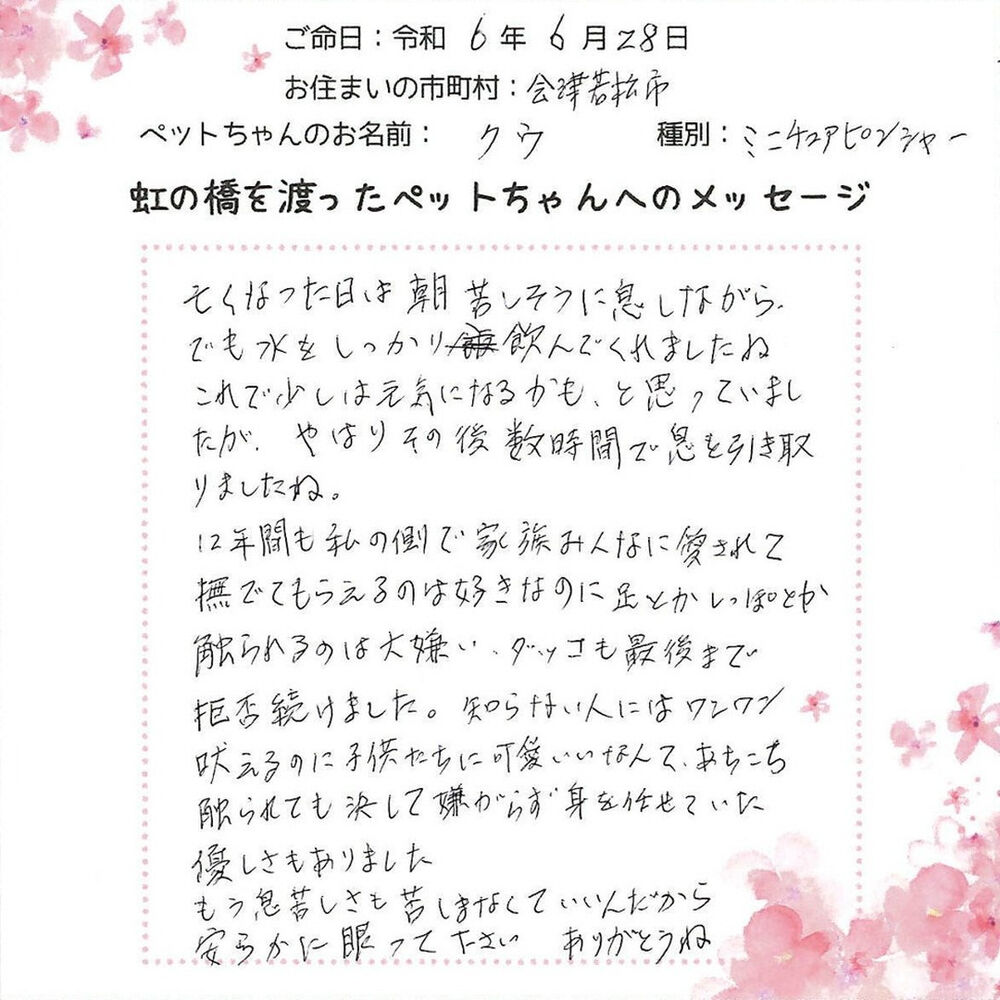 ご命日：令和 6年 6月28日
お住まいの市町村：会津若松市
ペットちゃんのお名前： クウ 種別：ミニチュアピンシャー
虹の橋を渡ったペットちゃんへのメッセージ
亡くなった日は朝苦しそうに息しながら、
でも水をしっかり飲んでくれましたね
これで少しは元気になるかも、と思っていまし
たが、やはりその後数時間で息を引き取
りましたね。
12年間も私の側で家族みんなに愛されて
撫でてもらえるのは好きなのに足とかしっぽとか
触られるのは大嫌い、ダッコも最後まで
拒否続けました。知らない人にはワンワン
吠えるのに子供たちに可愛いいなんて、あちこち
触られても決して嫌がらず身を任せていた
優しさもありました
もう息苦しさも苦しまなくていいんだから
安らかに眠ってださい ありがとうね